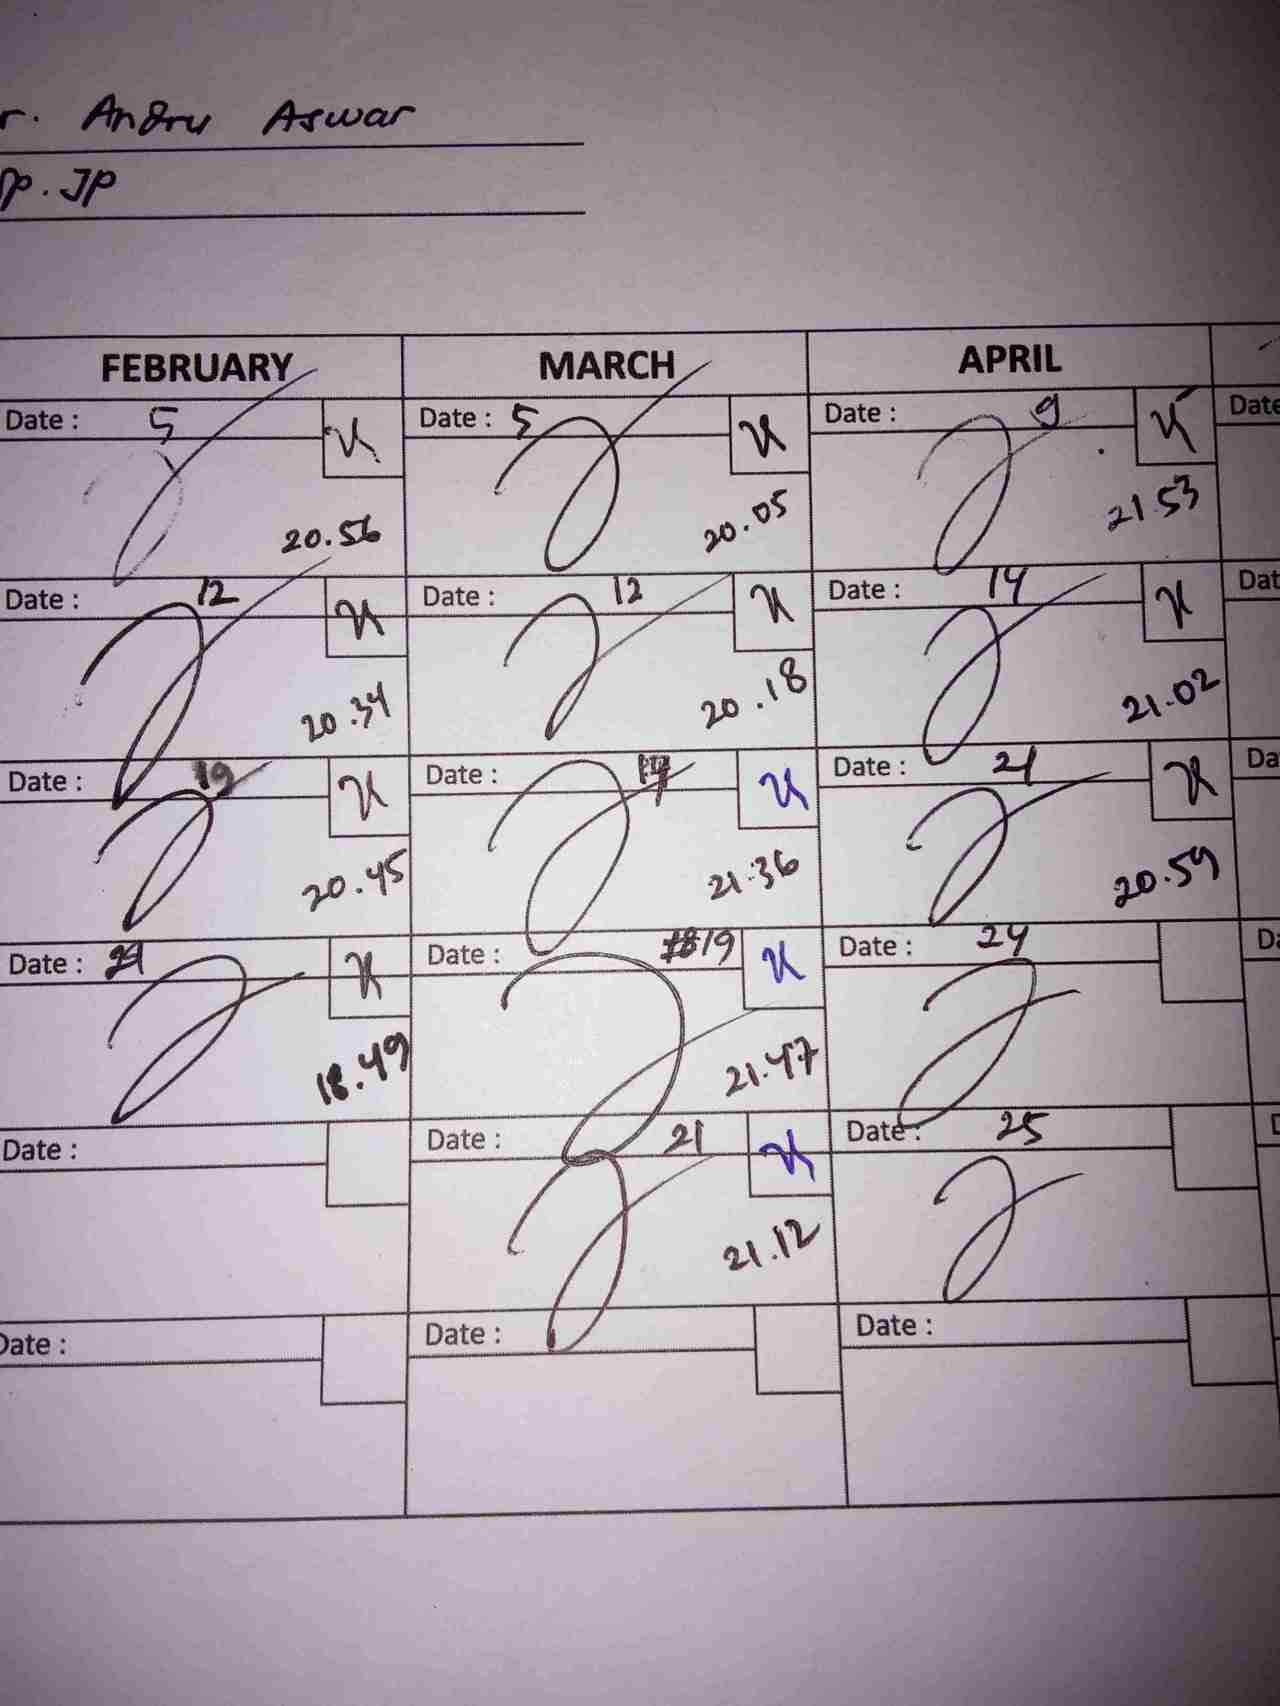 r. Andru Aswar
Sp. JP
FEBRUARY MARCH APRIL
Date : 5 Date : 5 Date : 9 Date
20.56 20.05 21.53
Date : 12 Date : 12 Date : 14 Dat
20.34 20.18 21.02
Date : 19 Date : 17 Date : 21 Da
20.45 21.36 20.59
Date : Date : 19 Date : 24 Da
18.49 21.47
Date : Date : 21 Date : 25
21.12
Date : Date : Date :